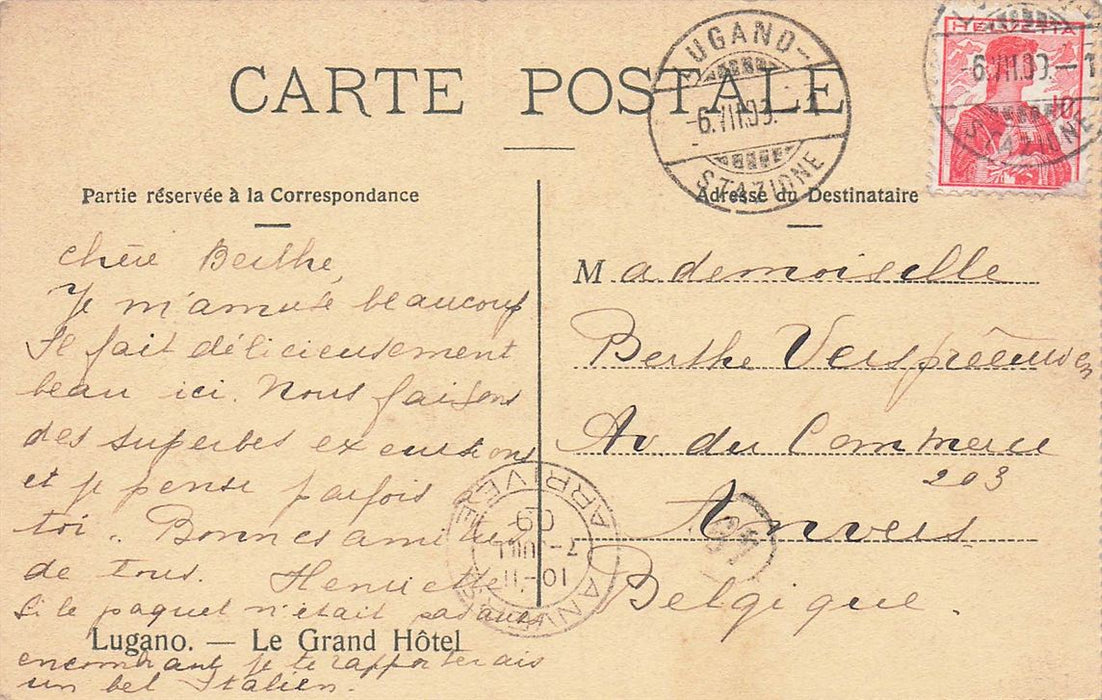 CARTE POSTALE
LUGANO-
-6.VII.09.-1
STAZIONE
HELVETIA
10
-6.VII.09.-1
STAZIONE
Partie réservée à la Correspondance
Adresse du Destinataire
Chère Berthe,
Je m'amuse beaucoup
Il fait délicieusement
beau ici. Nous faisons
des superbes excursions
et je pense parfois à
toi. Bonnes amitiés
de tous. Henriette
Si le paquet n'était pas aussi
encombrant je te rapporterais
un bel Italien.
Mademoiselle
Berthe
Av. du Commerce
203
Anvers
Belgique.
ANVERS
10-11
7-JUIL
09
ARRIVEE
Lugano. — Le Grand Hôtel